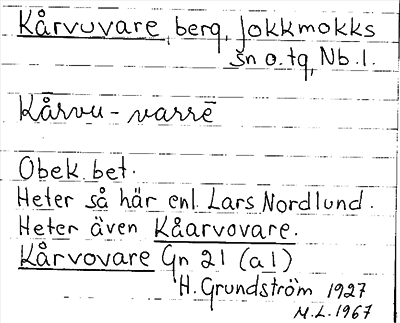 Kårvuvare, berg, Jokkmokks
sn o. tg, Nb. l.
Kårvu-varrē
Obek. bet.
Heter så här enl. Lars Nordlund.
Heter även Kåarvovare.
Kårvovare Gn 21 (a1)
H. Grundström 1927
M.L. 1967